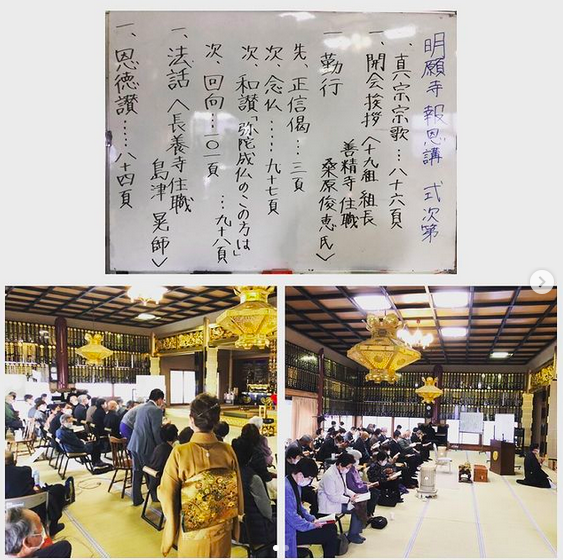 明願寺 報恩講 式次第
一、真宗宗歌…八十六頁
一、開会挨拶〈十九組 組長
善精寺 住職
桑原俊恵氏〉
一 勤行
先、正信偈…三頁
次、念仏…… 九十七頁
次、和讃「弥陀成仏のこの方は」
…九十八頁
次、回向…一〇一頁
一、法話〈長養寺住職
島津 晃師〉
一、恩徳讃…… 八十四頁